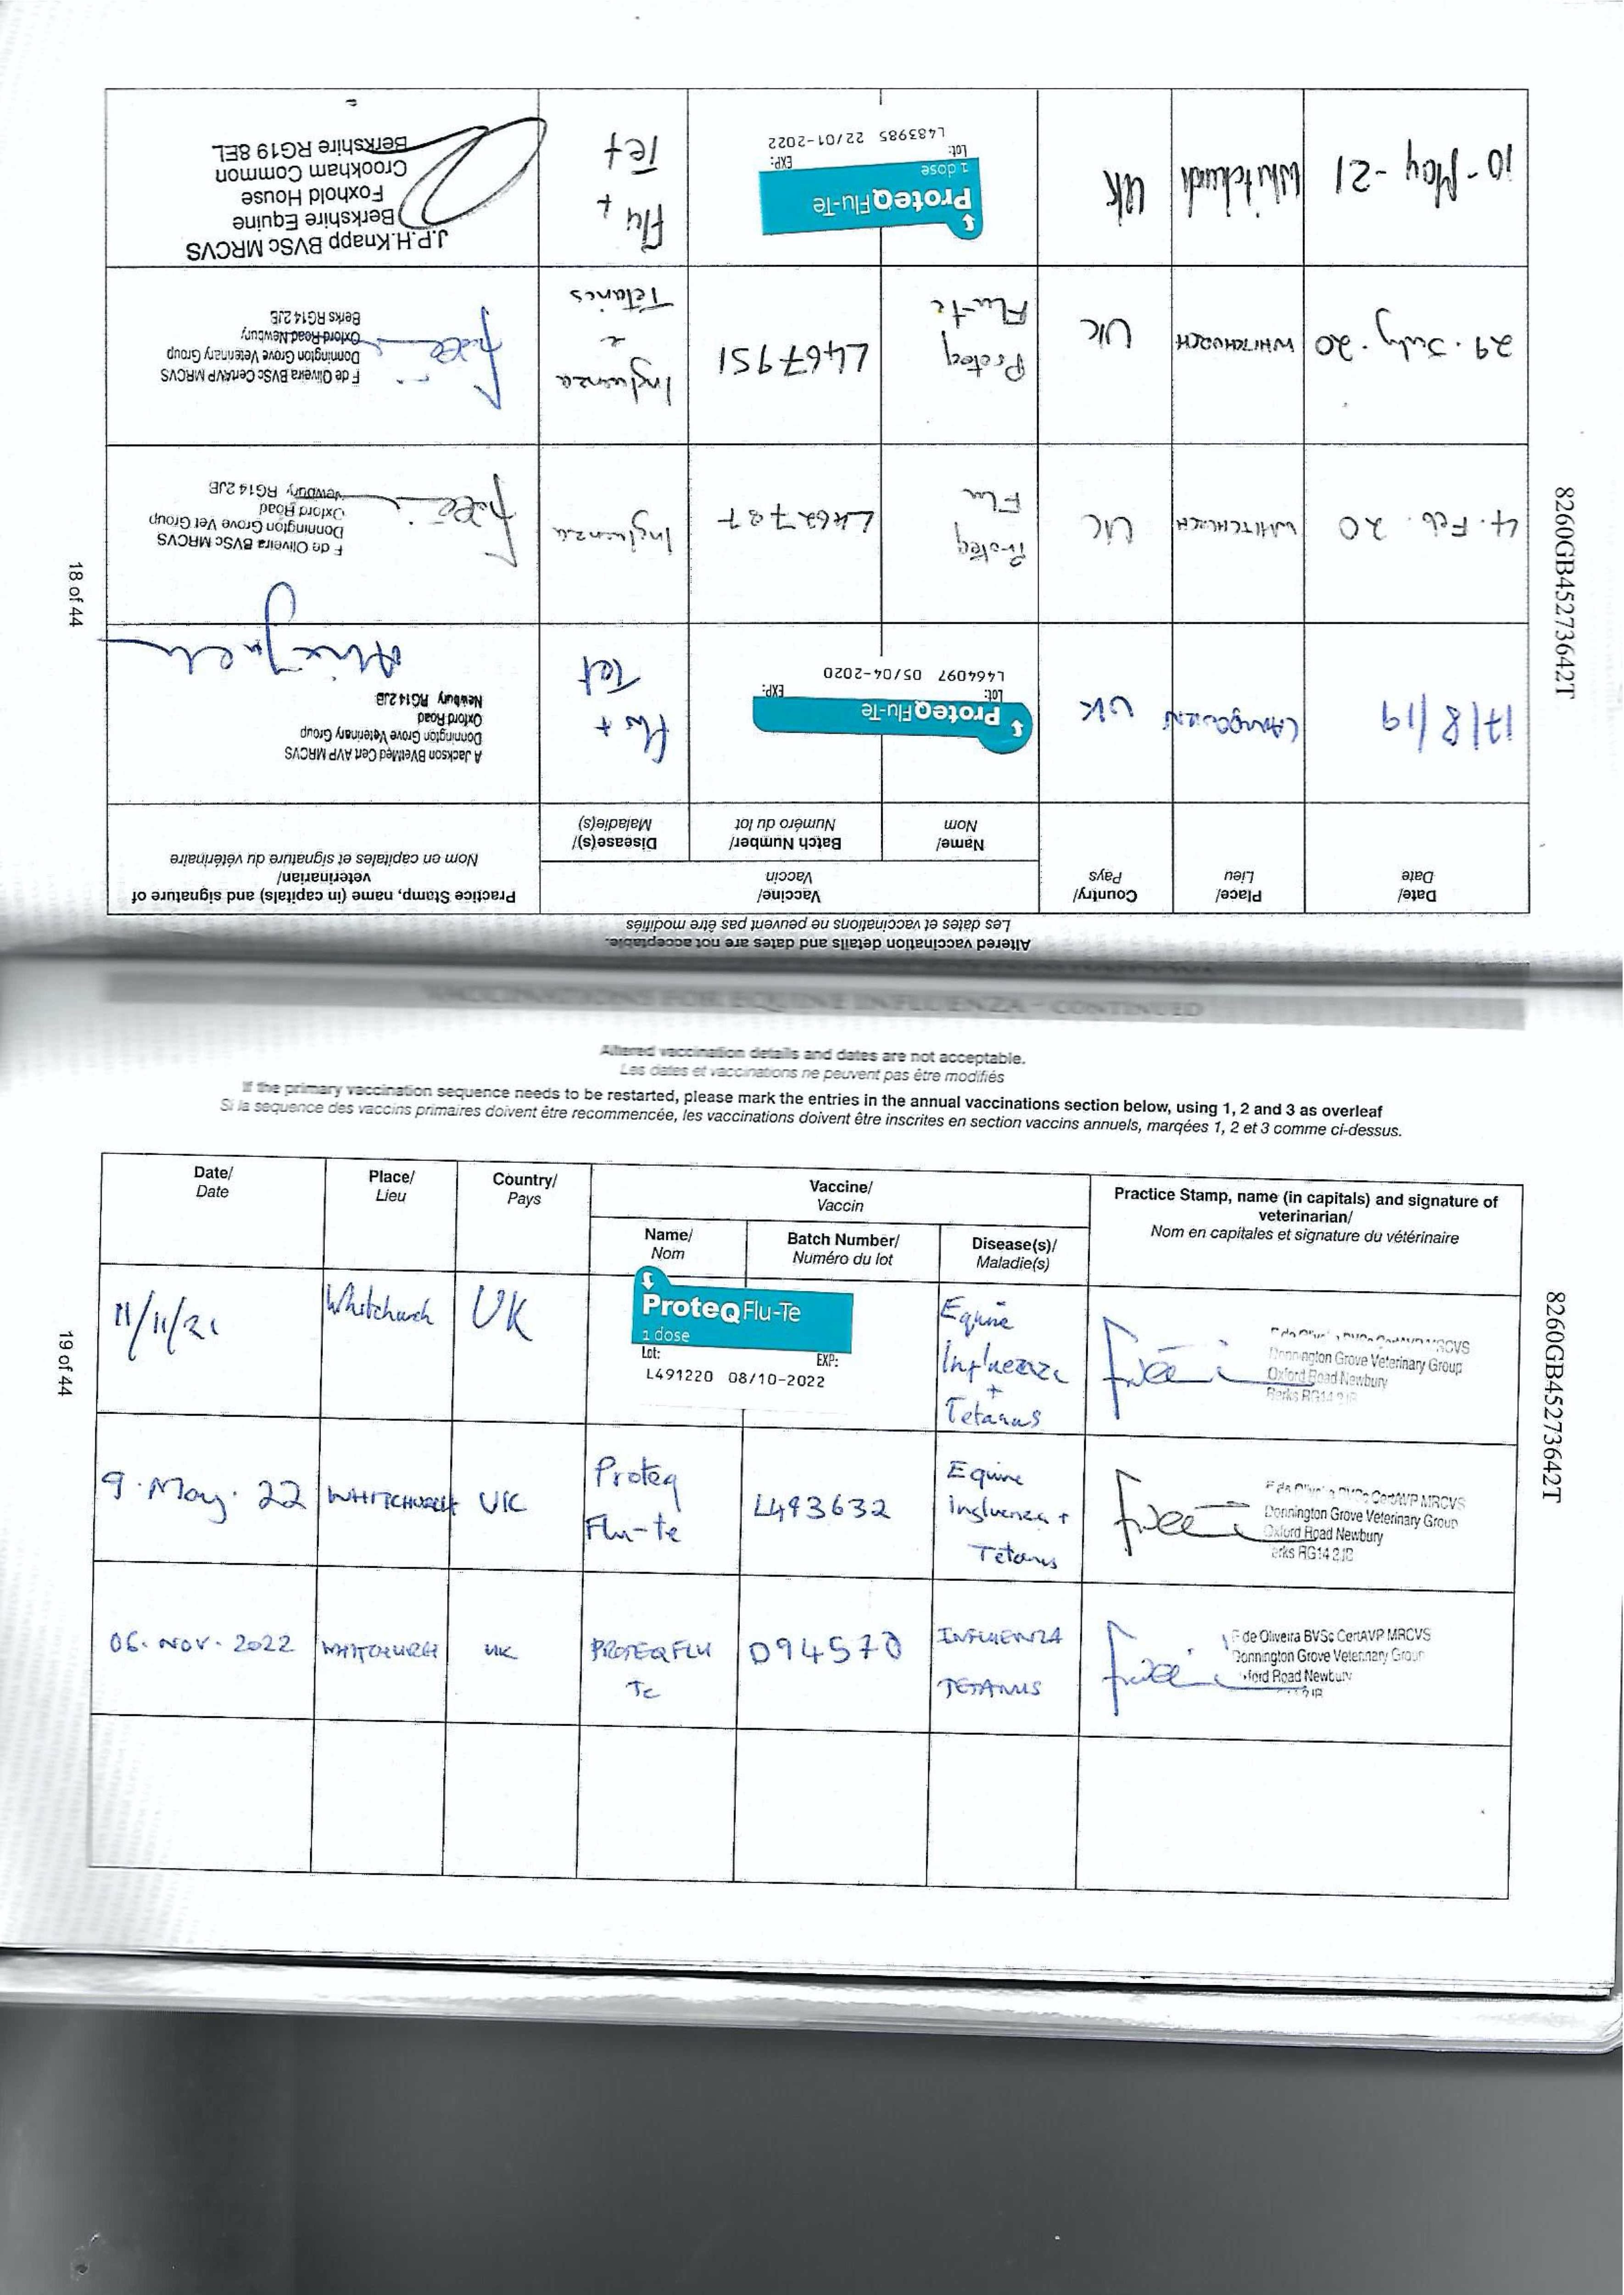 Altered vaccination details and dates are not acceptable.
Les dates et vaccinations ne peuvent pas être modifiés
Date/
Date
Place/
Lieu
Country/
Pays
Vaccine/
Vaccin
Name/
Nom
Batch Number/
Numéro du lot
Disease(s)/
Maladie(s)
Practice Stamp, name (in capitals) and signature of
veterinarian/
Nom en capitales et signature du vétérinaire
17/8/19
UK
ProteqFlu-Te
Lot: EXP:
L464097 05/04-2020
Flu +
Tet
A Jackson BVetMed Cert AVP MRCVS
Donnington Grove Veterinary Group
Oxford Road
Newbury RG14 2JB
4. Feb. 20
WHITCHURCH
UK
Proteq
Flu
Influenza
F de Oliveira BVSc MRCVS
Donnington Grove Vet Group
Oxford Road
Newbury RG14 2JB
29. July. 20
WHITCHURCH
UK
Proteq
Flu-te
L467951
Influenza
Tetanus
F de Oliveira BVSc CertAVP MRCVS
Donnington Grove Veterinary Group
Oxford Road Newbury
Berks RG14 2JB
10-May-21
Whitchurch
UK
ProteqFlu-Te
1 dose
Lot: EXP:
L483985 22/01-2022
Flu +
Tet
J.P.H.Knapp BVSc MRCVS
Berkshire Equine
Foxhold House
Crookham Common
Berkshire RG19 8EL
18 of 44
8260GB45273642T
VACCINATIONS FOR EQUINE INFLUENZA - CONTINUED
Altered vaccination details and dates are not acceptable.
Les dates et vaccinations ne peuvent pas être modifiés
If the primary vaccination sequence needs to be restarted, please mark the entries in the annual vaccinations section below, using 1, 2 and 3 as overleaf
Si la sequence des vaccins primaires doivent être recommencée, les vaccinations doivent être inscrites en section vaccins annuels, marqées 1, 2 et 3 comme ci-dessus.
Date/
Date
Place/
Lieu
Country/
Pays
Vaccine/
Vaccin
Name/
Nom
Batch Number/
Numéro du lot
Disease(s)/
Maladie(s)
Practice Stamp, name (in capitals) and signature of
veterinarian/
Nom en capitales et signature du vétérinaire
11/11/21
Whitchurch
UK
ProteqFlu-Te
1 dose
Lot: EXP:
L491220 08/10-2022
Equine
Influenza
+
Tetanus
Donnington Grove Veterinary Group
Oxford Road Newbury
Berks RG14 2JB
9. May. 22
WHITCHURCH
UK
Proteq
Flu-te
L493632
Equine
influenza +
Tetanus
CertAVP MRCVS
Donnington Grove Veterinary Group
Oxford Road Newbury
RG14 2JB
06. NOV. 2022
WHITCHURCH
UK
PROTEQFLU
Te
D94570
INFLUENZA
TETANUS
F de Oliveira BVSc CertAVP MRCVS
Donnington Grove Veterinary Group
Road Newbury
19 of 44
8260GB45273642T